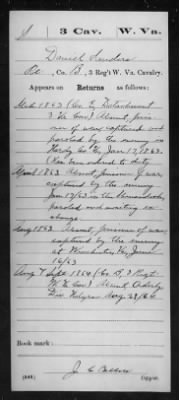 S | 3 Cav. | W. Va.
Daniel Sanders
Pvt, Co. B, 3 Reg't W. Va. Cavalry.
Appears on
Returns as follows:
Mch 1863 (Co. E, Detachment
3 Va Cav) Absent, priso
ner of war, captured and
paroled by the enemy in
Hardy Co. Va, Jan. 17, 1863.
Has been ordered to duty
April 1863 Absent, prisoner of war
captured by the enemy
Jan 17/63 in the
paroled and awaiting ex
change.
Aug 1863. Absent, prisoner of war
captured by the enemy
at Winchester, Va, June
15/63
Aug & Sept 1864 (Co. B, 3 Regt
W. Va Cav) Absent, Orderly
Div. Hdqrs Aug 28/64
Book mark:
J. C.
(546) Copyist.